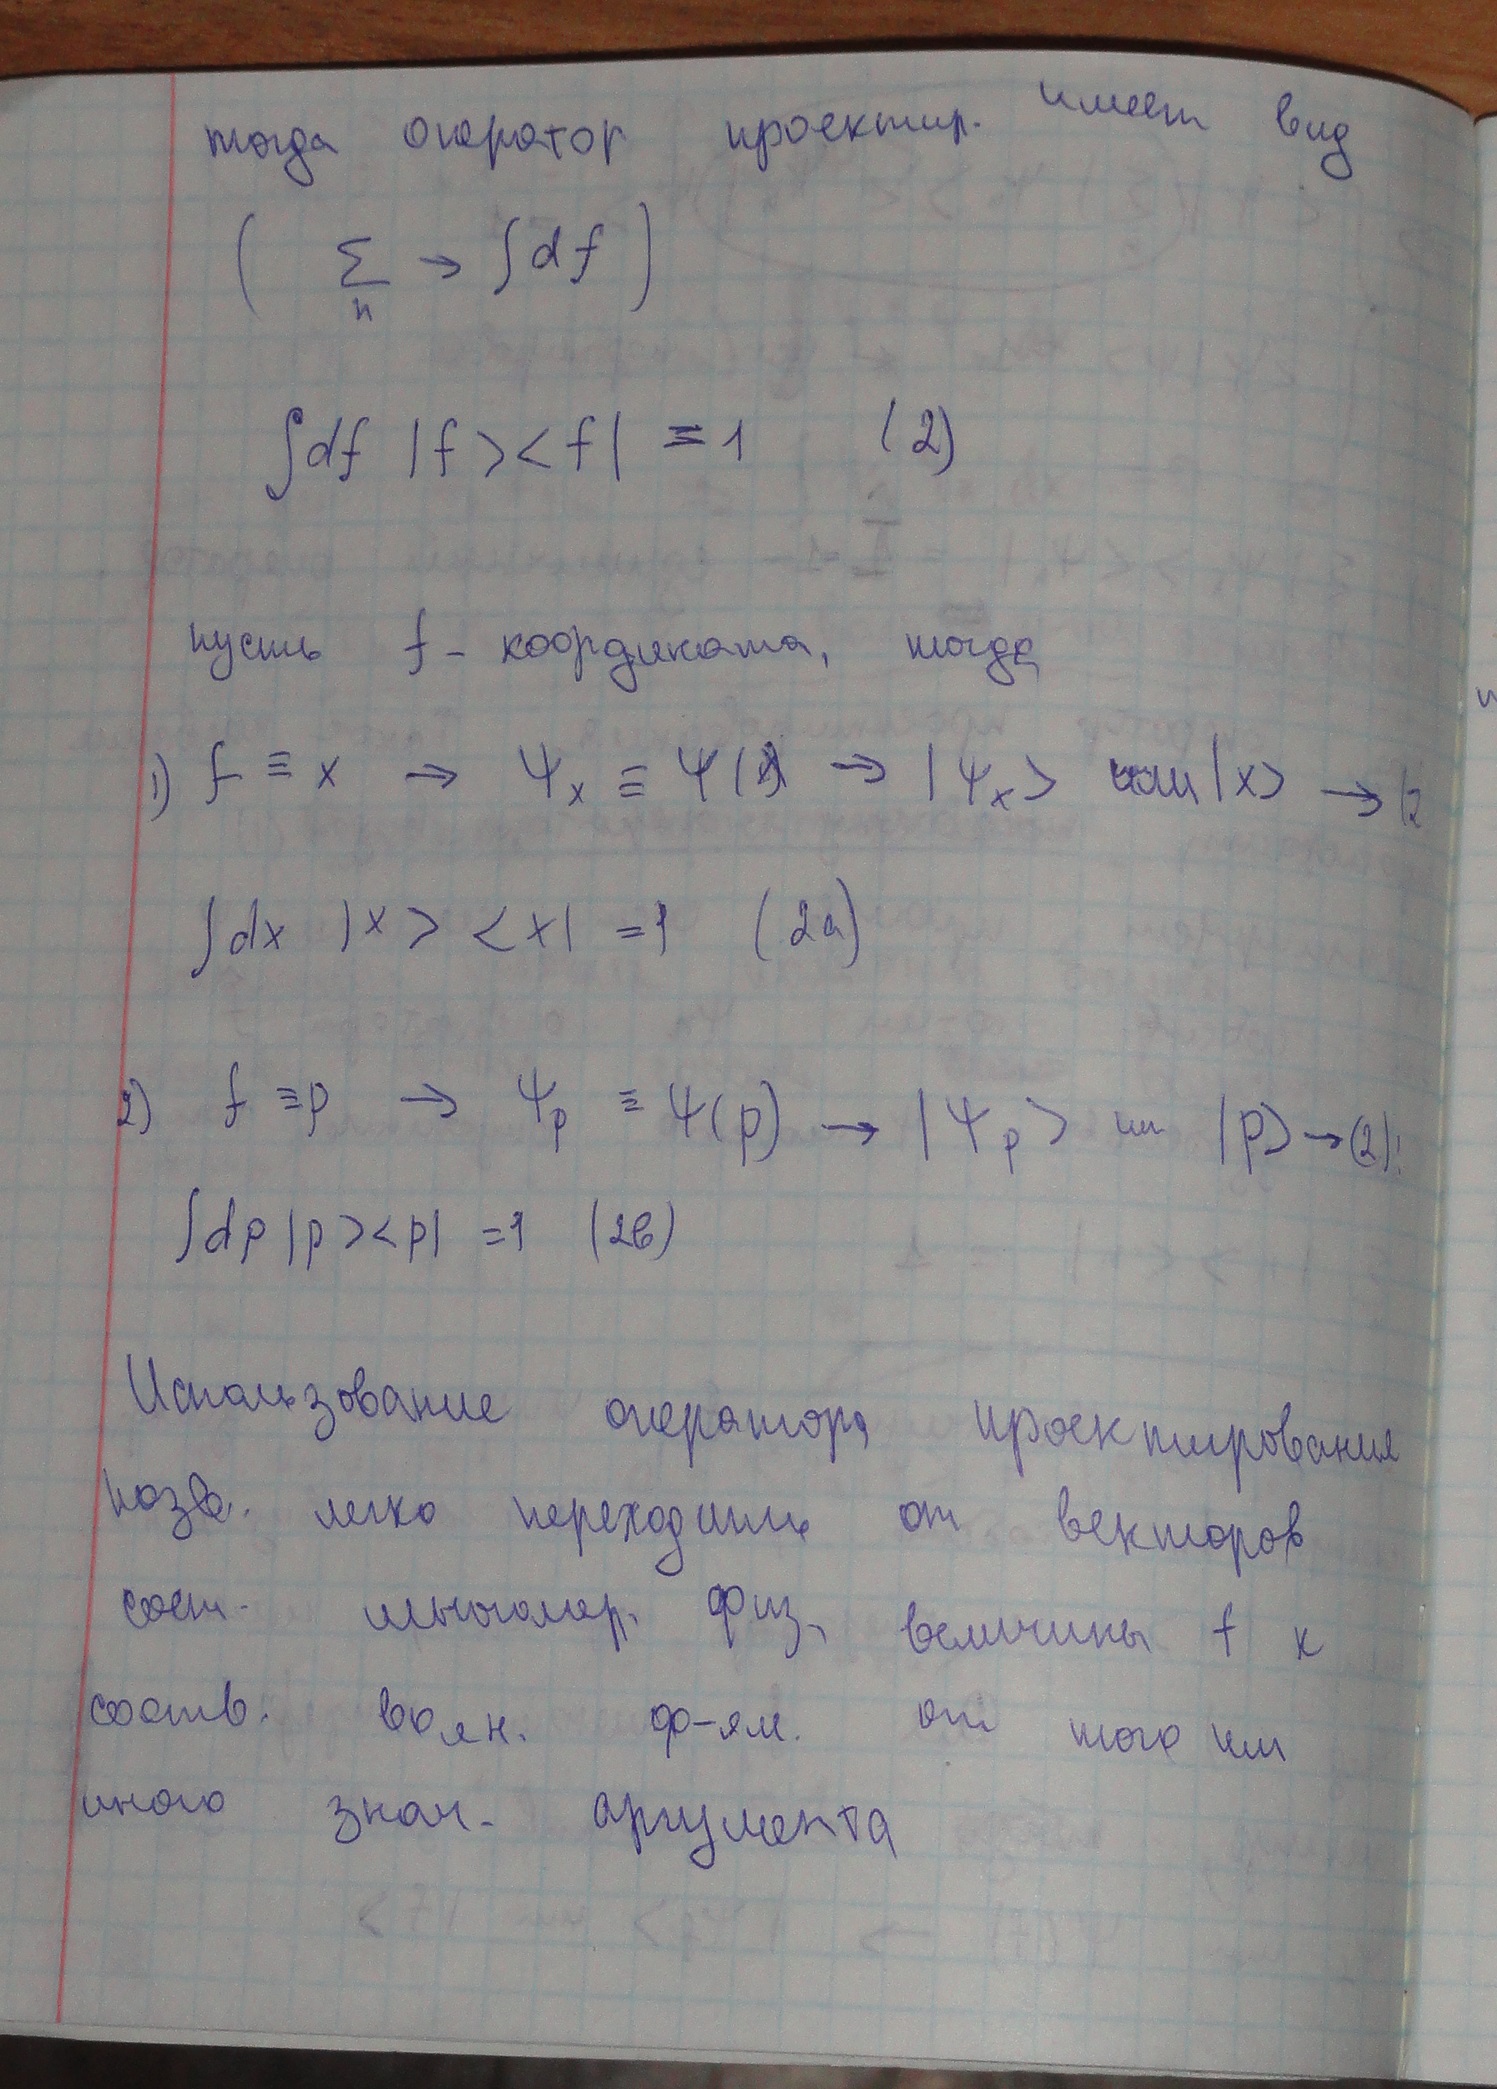 тогда оператор проектир. имеет вид
( ∑ₙ → ∫df )
∫df |f><f| = 1 (2)
пусть f - координата, тогда
1) f ≡ x → Ψₓ ≡ Ψ(x) → |Ψₓ> или |x> → (2
∫dx |x> <x| = 1 (2а)
2) f ≡ p → Ψₚ ≡ Ψ(p) → |Ψₚ> или |p> → (2):
∫dp |p><p| = 1 (2в)
Использование оператора проектирования
позв. легко переходить от векторов
сост. многомер. физ. величины f к
соотв. волн. ф-ям. от того или
иного знач. аргумента